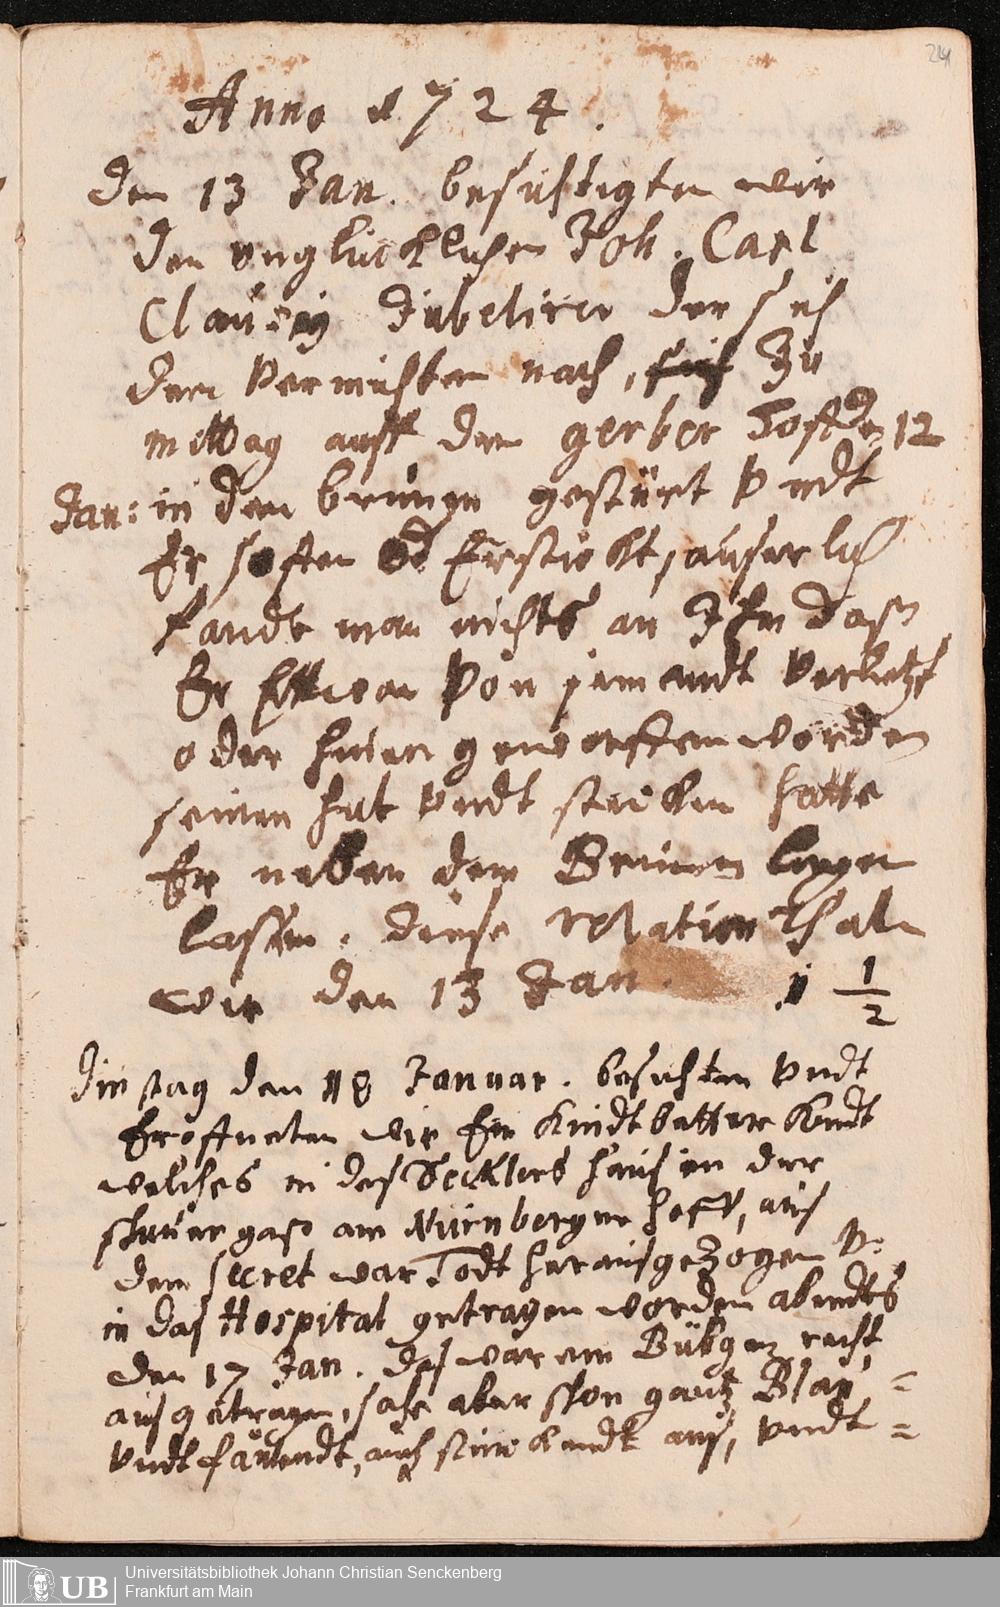 Anno 1724.
Den 13 Jan. besichtigten wir
den unglücklichen Joh. Carl
Jubelirer der sich
dem vermuthen nach, zu
mittag auff dem gerber den 12
Jan: in den brunen gestürtzt undt
Er soffen od Erstickt, äuserlich
fandt man nichts an Ihm dass
Er Ettwan von jemandt verletzt
oder hinein geworffen worden
seinen hut undt stecken hatte
Er neben dem Brunen liegen
lassen. diese relation
wir den 13 Jan. 1 1/2
Dinstag den 18 Januar. besichten undt
Eroffneten wir Ein Kindtbetter Kindt
welches in des Secklers haus in der
am Nürnberger hoff, aus
dem secret war Todt herausgezogen v:
in das Hospital getragen worden abendts
den 17 Jan. das war ein Bübgen recht
ausgetragen, sahe aber schon gantz Blau =
undt faulendt, auch stinckendt aus, undt =
Universitätsbibliothek Johann Christian Senckenberg
Frankfurt am Main
UB